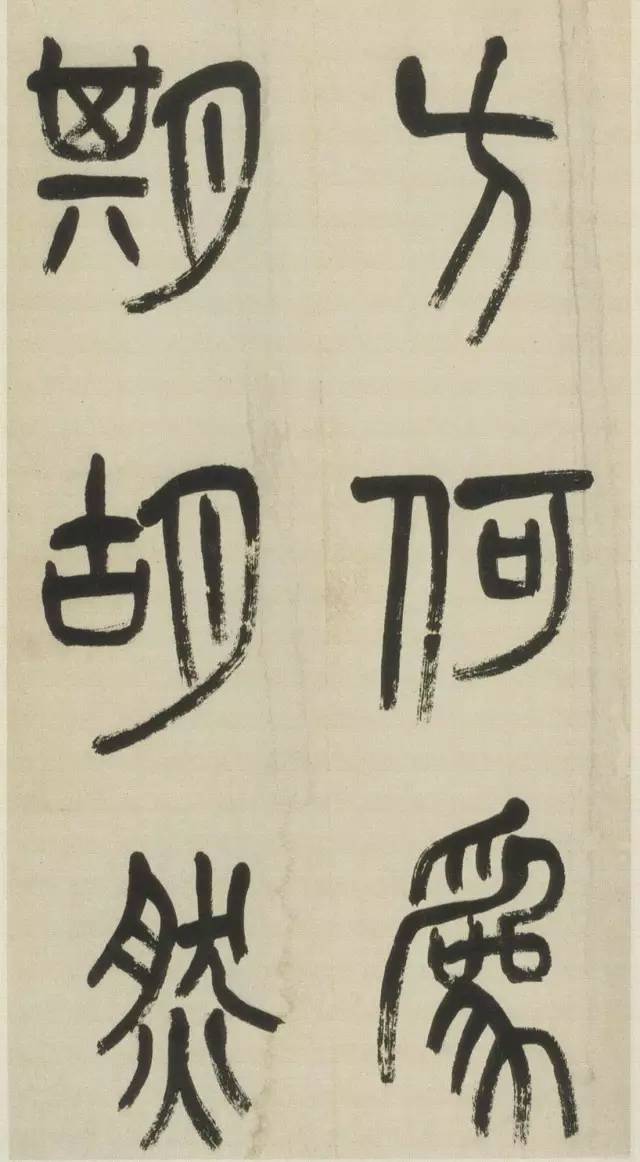 方何為
期胡然